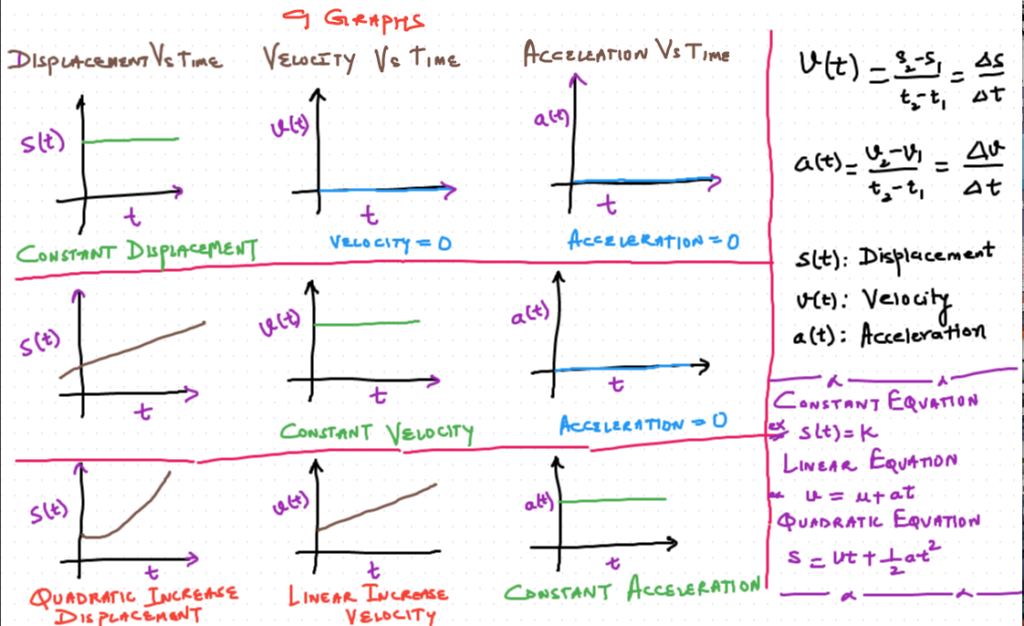 9 GRAPHS
DISPLACEMENT VS TIME
VELOCITY VS TIME
ACCELERATION VS TIME
s(t)
t
CONSTANT DISPLACEMENT
v(t)
t
VELOCITY = 0
a(t)
t
ACCELERATION = 0
s(t)
t
v(t)
t
CONSTANT VELOCITY
a(t)
t
ACCELERATION = 0
s(t)
t
QUADRATIC INCREASE
DISPLACEMENT
v(t)
t
LINEAR INCREASE
VELOCITY
a(t)
t
CONSTANT ACCELERATION
v(t) = (s₂-s₁)/(t₂-t₁) = Δs/Δt
a(t) = (v₂-v₁)/(t₂-t₁) = Δv/Δt
s(t): Displacement
v(t): Velocity
a(t): Acceleration
CONSTANT EQUATION
ex s(t) = K
LINEAR EQUATION
v = u+at
QUADRATIC EQUATION
s = vt + 1/2 at²